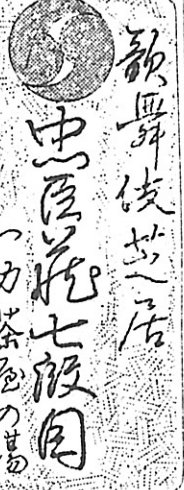 歌舞伎芝居
忠臣蔵七段目
一力茶屋の場